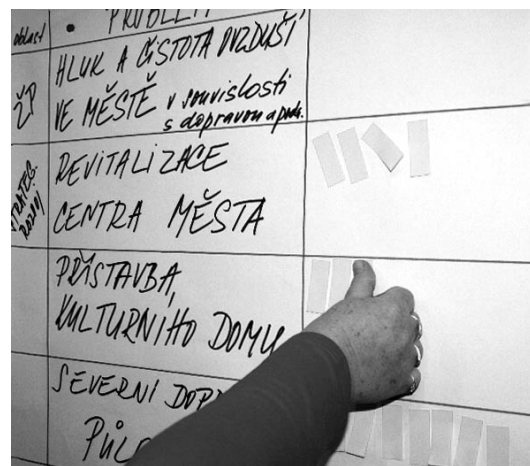 oblast • PROBLÉM
HLUK A ČISTOTA OVZDUŠÍ
ŽP VE MĚSTĚ v souvislosti
s dopravou a
REVITALIZACE
CENTRA MĚSTA
PŘÍSTAVBA
KULTURNÍHO DOMU
SEVERNÍ